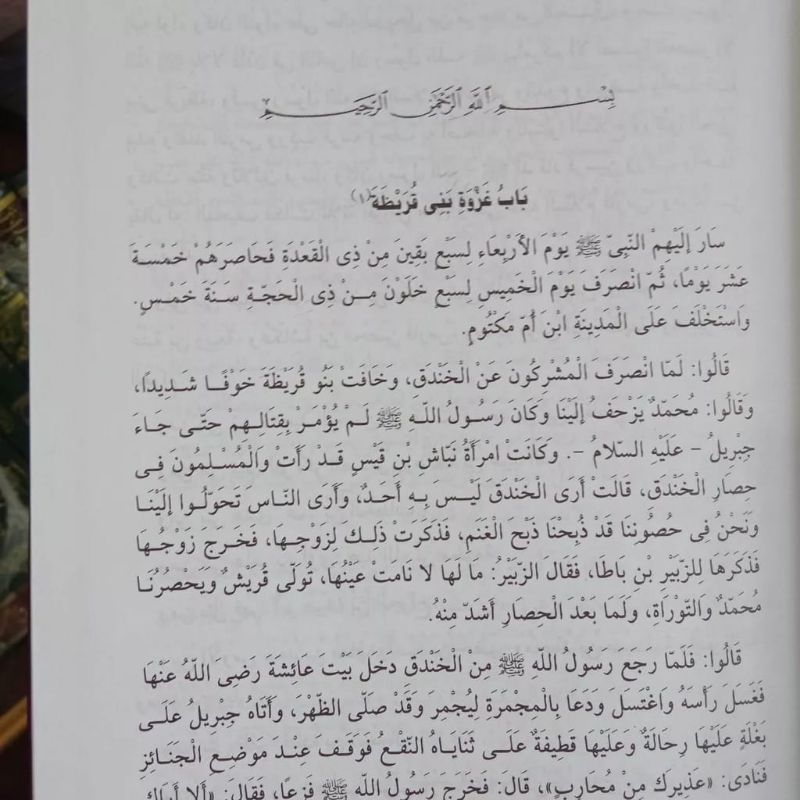 بِسْمِ اللَّهِ الرَّحْمَنِ الرَّحِيمِ
بَابُ غَزْوَةِ بَنِى قُرَيْظَةَ(١)
سَارَ إِلَيْهِمْ النَّبِىّ ﷺ يَوْمَ الأَرْبِعَاءِ لِسَبْعِ بَقِينَ مِنْ ذِى الْقَعْدَةِ فَحَاصَرَهُمْ خَمْسَةَ
عَشَرَ يَوْمًا، ثُمّ انْصَرَفَ يَوْمَ الْخَمِيسِ لِسَبْعِ خَلَوْنَ مِنْ ذِى الْحَجّةِ سَنَةَ خَمْسٍ.
وَاسْتَخْلَفَ عَلَى الْمَدِينَةِ ابْنَ أُمّ مَكْتُومٍ.
قَالُوا: لَمّا انْصَرَفَ الْمُشْرِكُونَ عَنْ الْخَنْدَقِ، وَخَافَتْ بَنُو قُرَيْظَةَ خَوْفًا شَدِيدًا،
وَقَالُوا: مُحَمّدٌ يَزْحَفُ إلَيْنَا وَكَانَ رَسُولُ اللّهِ ﷺ لَمْ يُؤْمَرْ بِقِتَالِهِمْ حَتّى جَاءَ
جِبْرِيلُ - عَلَيْهِ السّلامُ -. وَكَانَتْ امْرَأَةُ نَبّاشِ بْنِ قَيْسٍ قَدْ رَأَتْ وَالْمُسْلِمُونَ فِى
حِصَارِ الْخَنْدَقِ، قَالَتْ أَرَى الْخَنْدَقَ لَيْسَ بِهِ أَحَدٌ، وَأَرَى النّاسَ تَحَوّلُوا إلَيْنَا
وَنَحْنُ فِى حُصُونِنَا قَدْ ذُبِحْنَا ذَبْحَ الْغَنَمِ، فَذَكَرَتْ ذَلِكَ لِزَوْجِهَا، فَخَرَجَ زَوْجُهَا
فَذَكَرَهَا لِلزّبَيْرِ بْنِ بَاطَا، فَقَالَ الزّبَيْرُ: مَا لَهَا لا نَامَتْ عَيْنُهَا، تُوَلّى قُرَيْشٌ وَيَحْصُرُنَا
مُحَمّدٌ وَالتّوْرَاةِ، وَلَمَا بَعْدَ الْحِصَارِ أَشَدّ مِنْهُ.
قَالُوا: فَلَمّا رَجَعَ رَسُولُ اللّهِ ﷺ مِنْ الْخَنْدَقِ دَخَلَ بَيْتَ عَائِشَةَ رَضِىَ اللّهُ عَنْهَا
فَغَسَلَ رَأْسَهُ وَاغْتَسَلَ وَدَعَا بِالْمِجْمَرَةِ لِيُجْمِرَ وَقَدْ صَلّى الظّهْرَ، وَأَتَاهُ جِبْرِيلُ عَلَى
بَغْلَةٍ عَلَيْهَا رِحَالَةٌ وَعَلَيْهَا قَطِيفَةٌ عَلَى ثَنَايَاهُ النّقْعُ فَوَقَفَ عِنْدَ مَوْضِعِ الْجَنَائِزِ
فَنَادَى: «عَذِيرَك مِنْ مُحَارِبٍ»، قَالَ: فَخَرَجَ رَسُولُ اللّهِ ﷺ فَزِعًا، فَقَالَ: «أَلا أَرَاك